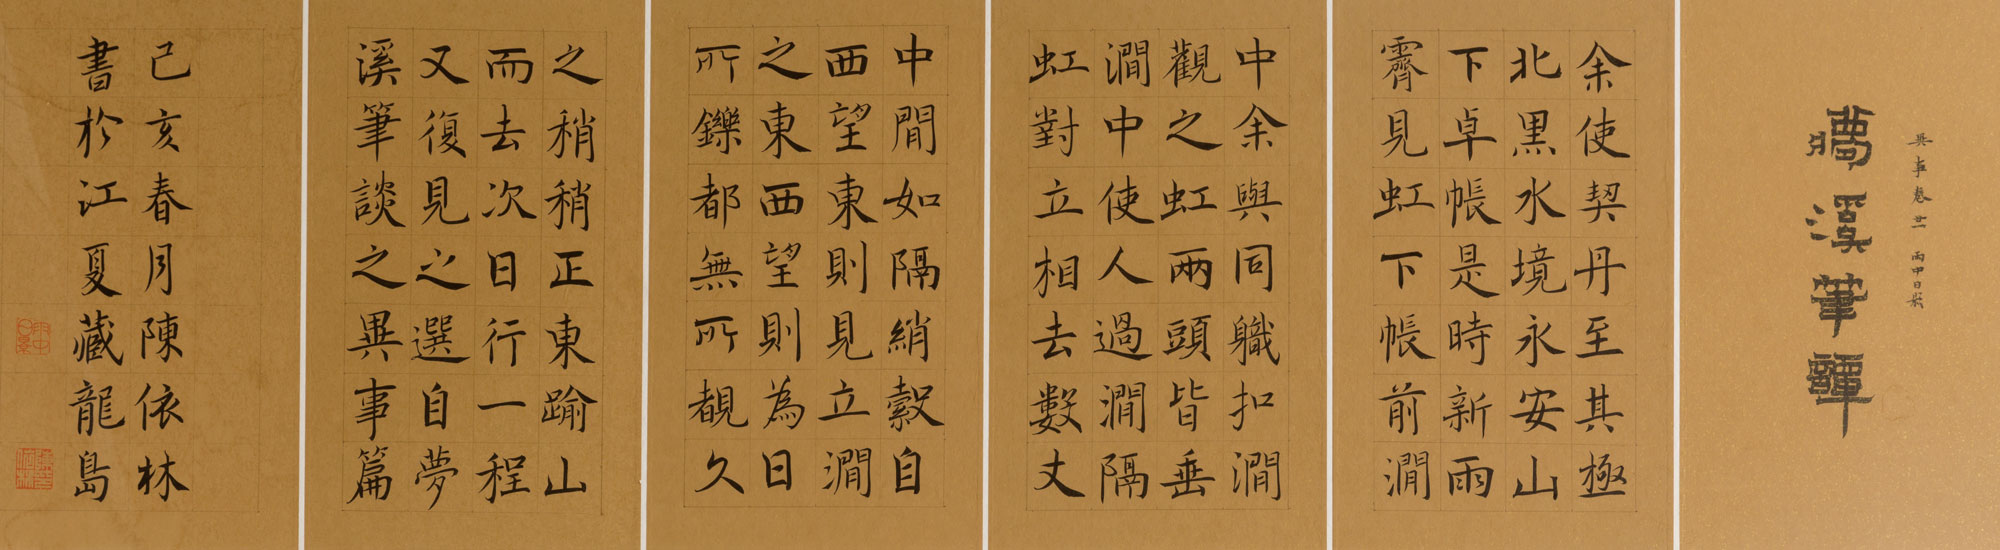 異事卷廿一 雨中日影
夢溪筆譚
余使契丹至其極
北黑水境永安山
下卓帳是時新雨
霽見虹下帳前澗
中余與同職扣澗
觀之虹兩頭皆垂
澗中使人過澗隔
虹對立相去數丈
中閒如隔綃縠自
西望東則見立澗
之東西望則為日
所鑠都無所覩久
之稍稍正東踰山
而去次日行一程
又復見之選自夢
溪筆談之異事篇
己亥春月陳依林
書於江夏藏龍島